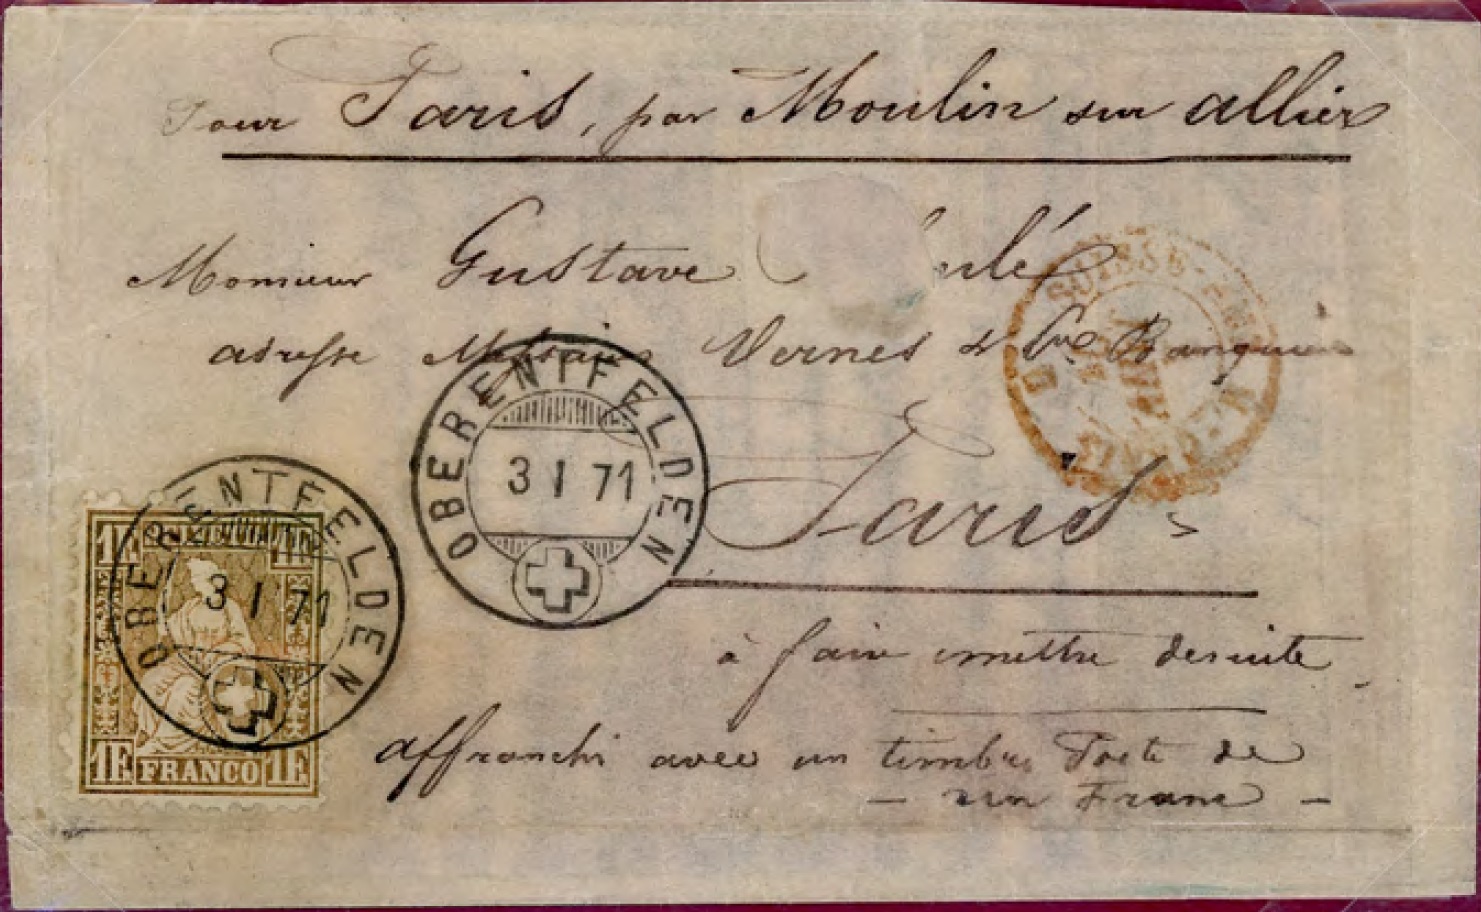 Pour Paris, par Moulin sur allier
Monsieur Gustave ulé
adresse Messieurs Vernes & Cie Banquiers
Paris
à faire mettre desuite
affranchi avec un timbre Poste de
- un Franc -
OBERENTFELDEN
3 I 71
OBERENTFELDEN
3 I 71
1F 1F
1F FRANCO 1F
SUISSE-AMB